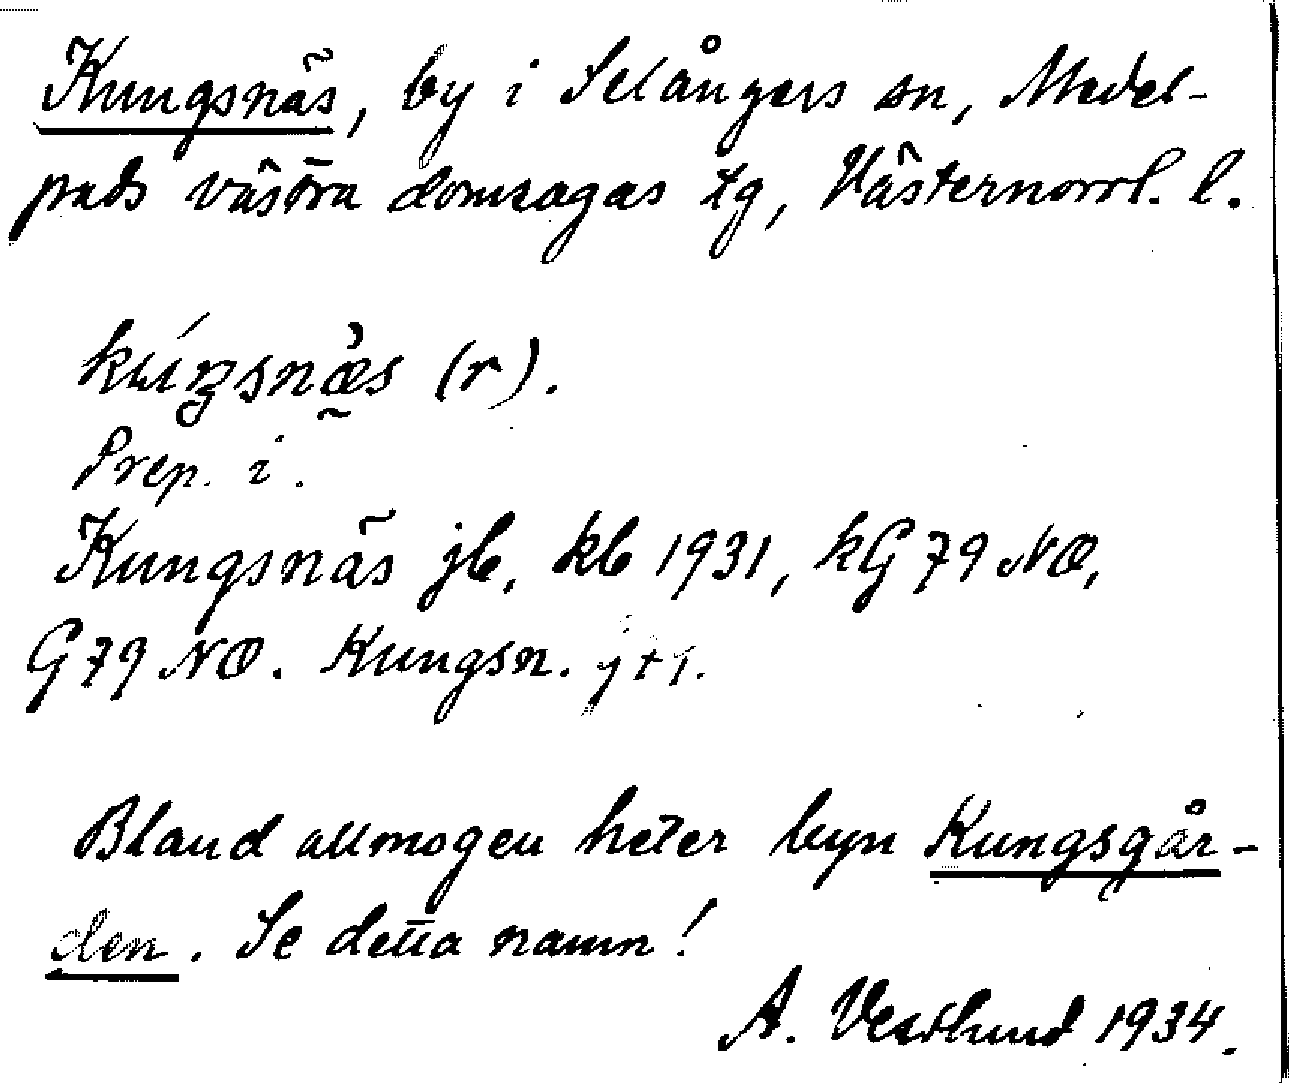 Kungsnäs, by i Selångers sn, Medel-
pads västra domsagas tg, Västernorrl. l.
(r).
Prep. i.
Kungsnäs jb, kb 1931, kG 79 NO,
G 79 NO. Kungsn.
Bland allmogen heter byn Kungsgår-
den. Se detta namn!
A. Vestlund 1934.